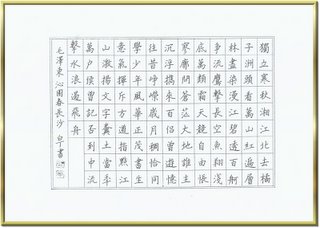 獨立寒秋湘江北去橘
子洲頭看萬山紅遍層
林盡染漫江碧透百舸
爭流鷹擊長空魚翔淺
底萬類霜天競自由悵
寥廓問蒼茫大地誰主
沉浮攜來百侶曾遊憶
往昔崢嶸歲月稠恰同
學少年風華正茂書生
意氣揮斥方遒指點江
山激揚文字糞土當年
萬戶侯曾記否到中流
擊水浪遏飛舟
毛澤東 沁園春長沙 書